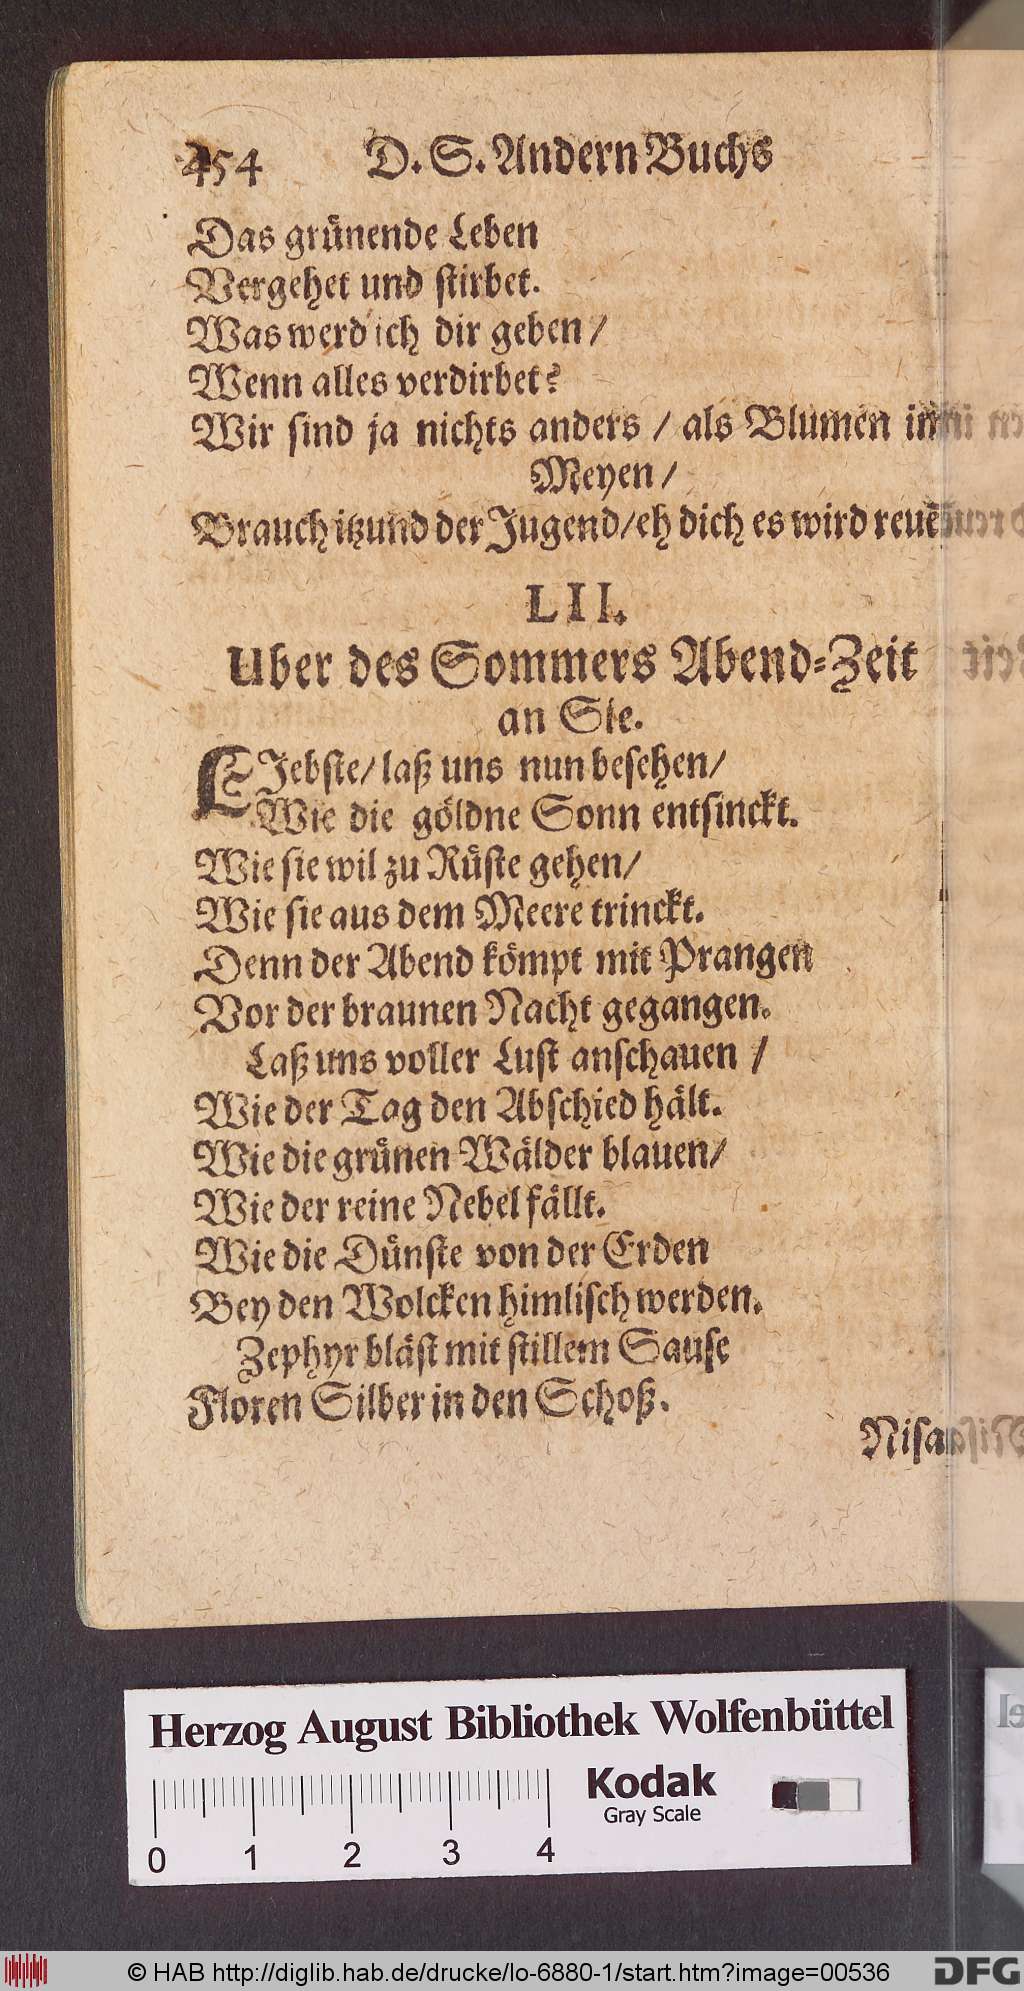 454 D. S. Andern Buchs
Das grünende Leben
Vergehet und stirbet.
Was werd ich dir geben /
Wenn alles verdirbet?
Wir sind ja nichts anders / als Blumen im
Meyen /
Brauch itzund der Jugend / eh dich es wird reuē
LII.
Uber des Sommers Abend-Zeit
an Sie.
LIebste / laß uns nun besehen /
Wie die göldne Sonn entsinckt.
Wie sie wil zu Rüste gehen /
Wie sie aus dem Meere trinckt.
Denn der Abend kömpt mit Prangen
Vor der braunen Nacht gegangen.
Laß uns voller Lust anschauen /
Wie der Tag den Abschied hält.
Wie die grünen Wälder blauen /
Wie der reine Nebel fällt.
Wie die Dünste von der Erden
Bey den Wolcken himlisch werden.
Zephyr bläst mit stillem Sause
Floren Silber in den Schoß.
Nisa
Herzog August Bibliothek Wolfenbüttel
Kodak
Gray Scale
0 1 2 3 4
© HAB http://diglib.hab.de/drucke/lo-6880-1/start.htm?image=00536
DFG